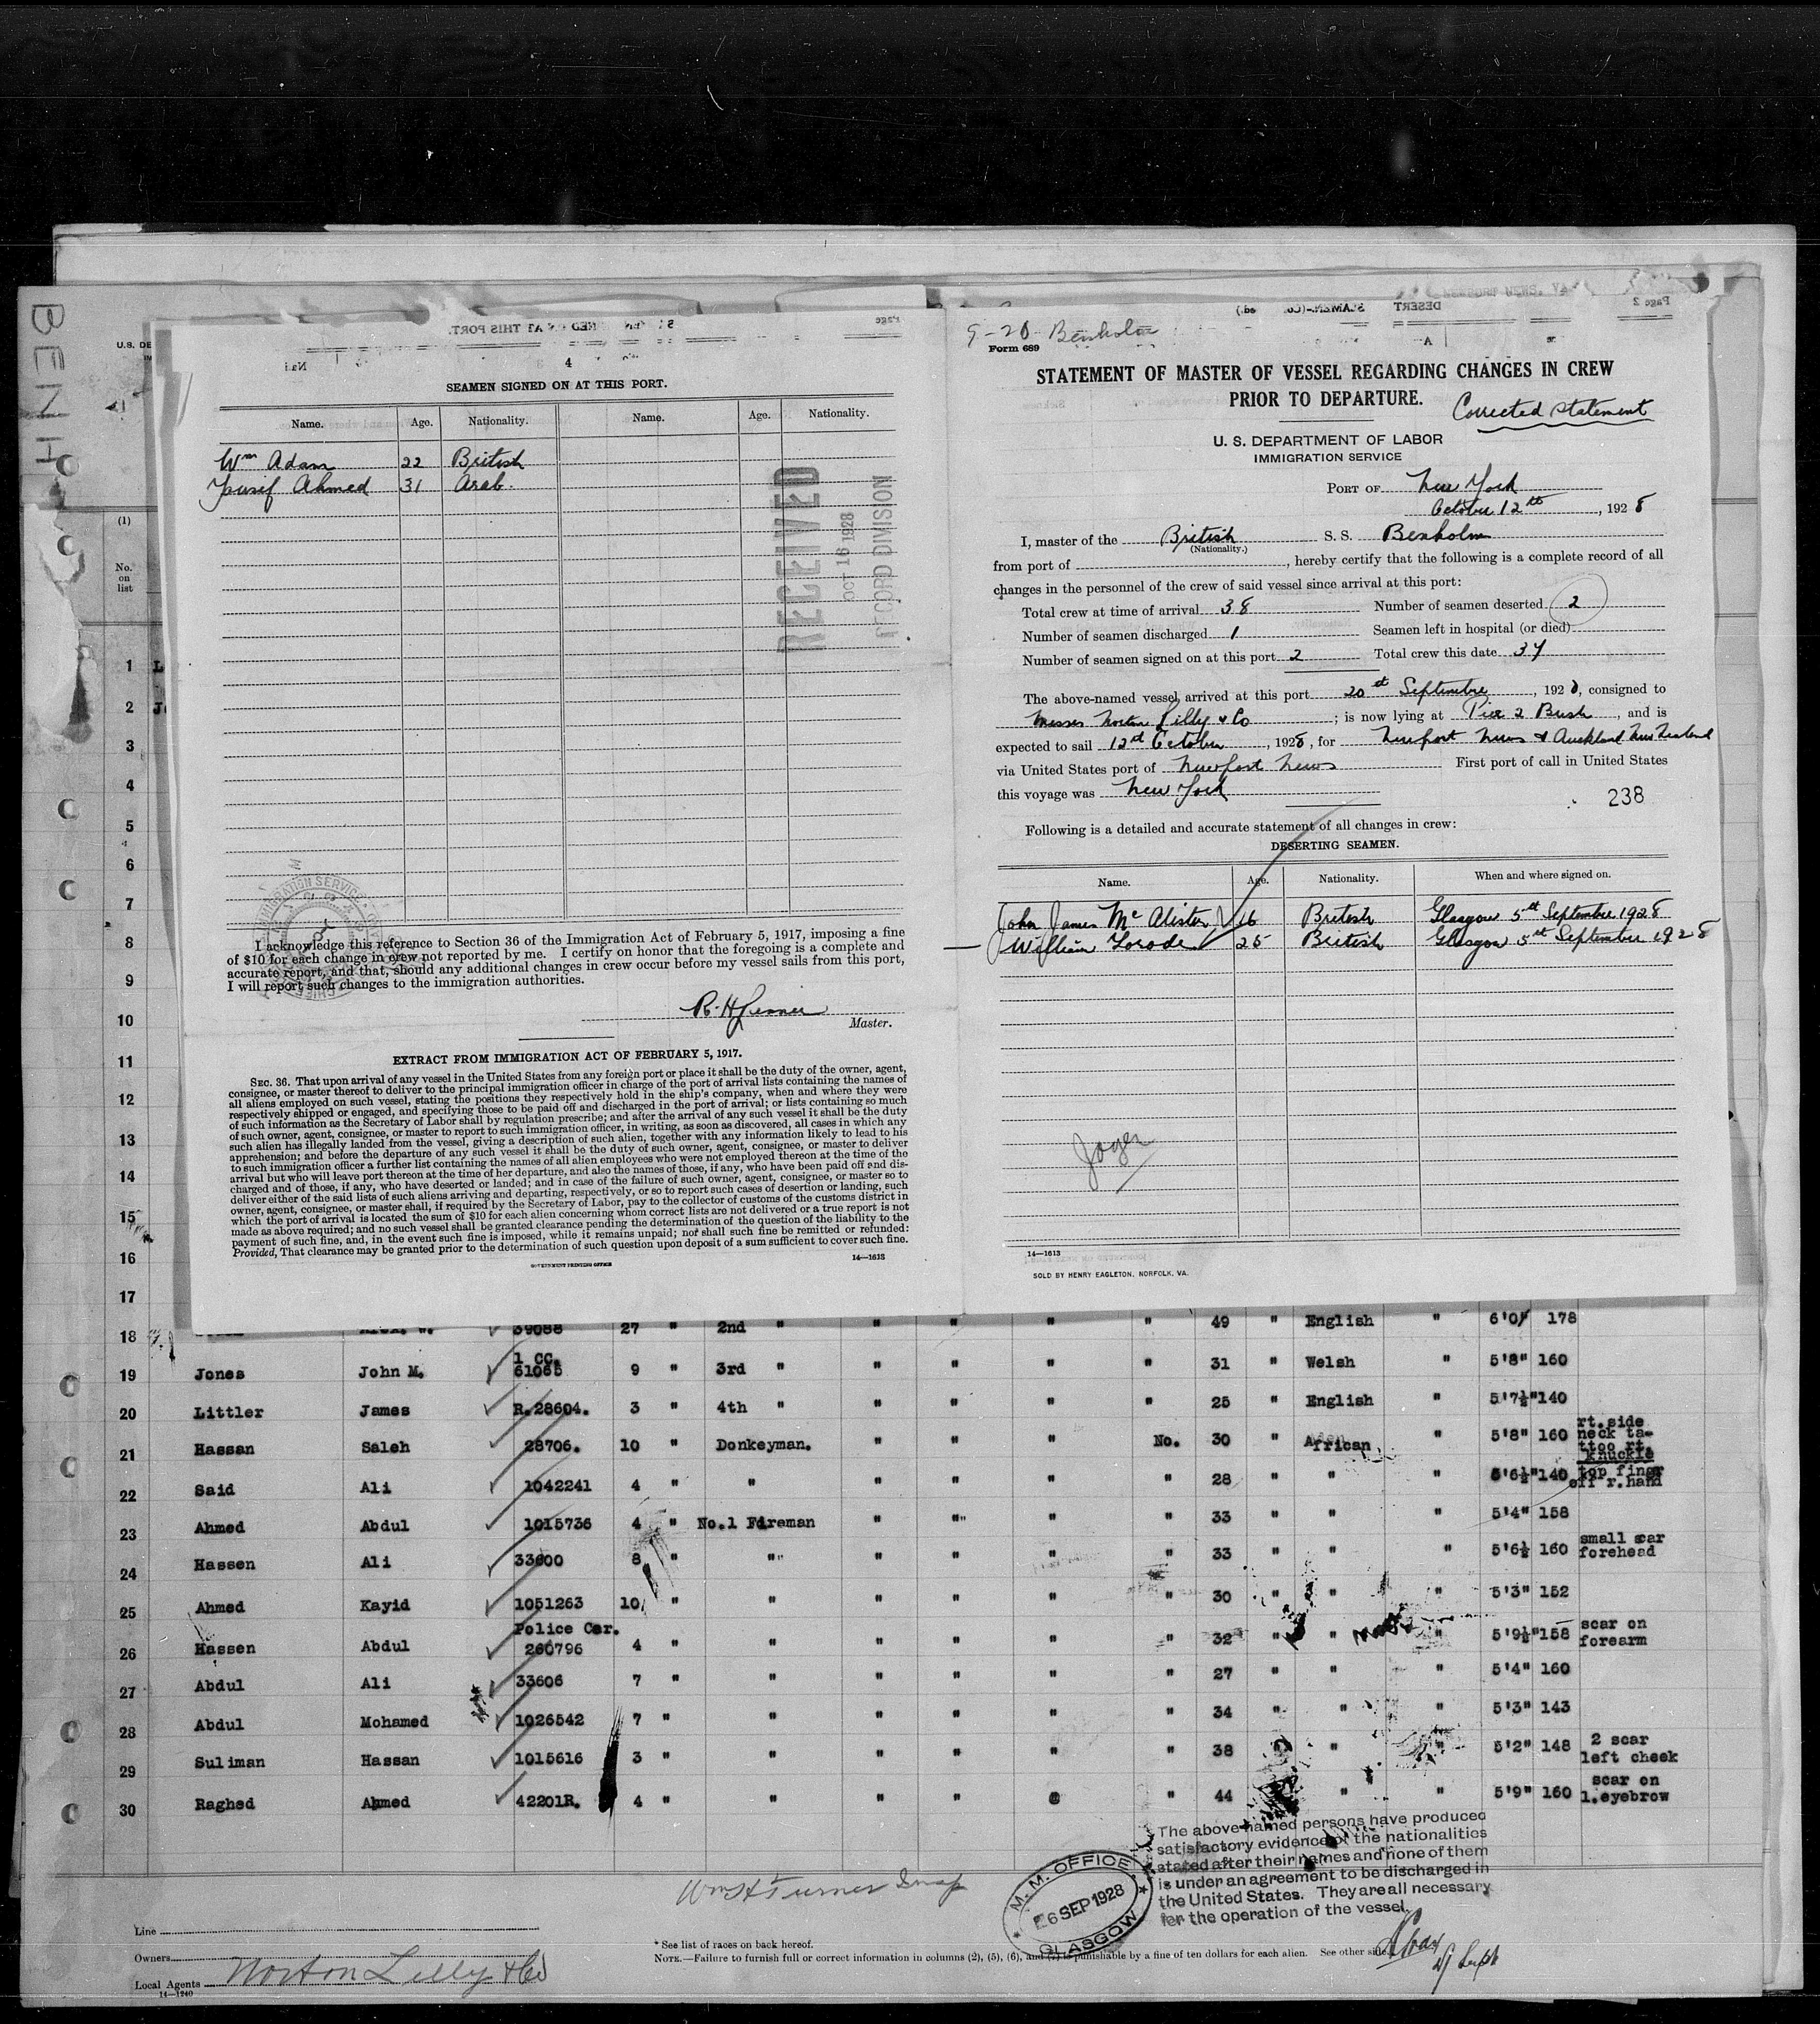 BENH
U.S. DE
(1)
No.
on
list
4
SEAMEN SIGNED ON AT THIS PORT.
Name. Age. Nationality. Name. Age. Nationality.
Wm Adam 22 British
Yousif Ahmed 31 Arab.
RECEIVED
OCT 16 1928
RECORD DIVISION
I acknowledge this reference to Section 36 of the Immigration Act of February 5, 1917, imposing a fine
of $10 for each change in crew not reported by me. I certify on honor that the foregoing is a complete and
accurate report, and that, should any additional changes in crew occur before my vessel sails from this port,
I will report such changes to the immigration authorities.
Master.
EXTRACT FROM IMMIGRATION ACT OF FEBRUARY 5, 1917.
SEC. 36. That upon arrival of any vessel in the United States from any foreign port or place it shall be the duty of the owner, agent,
consignee, or master thereof to deliver to the principal immigration officer in charge of the port of arrival lists containing the names of
all aliens employed on such vessel, stating the positions they respectively hold in the ship's company, when and where they were
respectively shipped or engaged, and specifying those to be paid off and discharged in the port of arrival; or lists containing so much
of such information as the Secretary of Labor shall by regulation prescribe; and after the arrival of any such vessel it shall be the duty
of such owner, agent, consignee, or master to report to such immigration officer, in writing, as soon as discovered, all cases in which any
such alien has illegally landed from the vessel, giving a description of such alien, together with any information likely to lead to his
apprehension; and before the departure of any such vessel it shall be the duty of such owner, agent, consignee, or master to deliver
to such immigration officer a further list containing the names of all alien employees who were not employed thereon at the time of the
arrival but who will leave port thereon at the time of her departure, and also the names of those, if any, who have been paid off and dis-
charged and of those, if any, who have deserted or landed; and in case of the failure of such owner, agent, consignee, or master so to
deliver either of the said lists of such aliens arriving and departing, respectively, or so to report such cases of desertion or landing, such
owner, agent, consignee, or master shall, if required by the Secretary of Labor, pay to the collector of customs of the customs district in
which the port of arrival is located the sum of $10 for each alien concerning whom correct lists are not delivered or a true report is not
made as above required; and no such vessel shall be granted clearance pending the determination of the question of the liability to the
payment of such fine, and, in the event such fine is imposed, while it remains unpaid; nor shall such fine be remitted or refunded:
Provided, That clearance may be granted prior to the determination of such question upon deposit of a sum sufficient to cover such fine.
GOVERNMENT PRINTING OFFICE 14—1613
9-20 Benholm
Form 689
STATEMENT OF MASTER OF VESSEL REGARDING CHANGES IN CREW
PRIOR TO DEPARTURE.
Corrected statement
U. S. DEPARTMENT OF LABOR
IMMIGRATION SERVICE
PORT OF New York
October 12th, 1928
I, master of the British S. S. Benholm
(Nationality.)
from port of , hereby certify that the following is a complete record of all
changes in the personnel of the crew of said vessel since arrival at this port:
Total crew at time of arrival 38 Number of seamen deserted 2
Number of seamen discharged 1 Seamen left in hospital (or died)
Number of seamen signed on at this port 2 Total crew this date 37
The above-named vessel arrived at this port 20st September, 1928, consigned to
Messrs Norton Lilly & Co ; is now lying at Pier 2 Bush, and is
expected to sail 12st October, 1928, for Newport News & Auckland New Zealand
via United States port of Newport News First port of call in United States
this voyage was New York
238
Following is a detailed and accurate statement of all changes in crew:
DESERTING SEAMEN.
Name. Age. Nationality. When and where signed on.
John James McAlister 16 British Glasgow 5st September 1928
William 25 British Glasgow 5st September 1928
14—1613
SOLD BY HENRY EAGLETON, NORFOLK, VA.
1
2
3
4
5
6
7
8
9
10
11
12
13
14
15
16
17
18 39088 27 " 2nd " " " " " 49 " English " 6'0 178
19 Jones John M. 1 CC. 61065 9 " 3rd " " " " " 31 " Welsh " 5'8" 160
20 Littler James R.28604. 3 " 4th " " " " " 25 " English " 5'7½" 140
21 Hassan Saleh 28706. 10 " Donkeyman. " " " No. 30 " African " 5'8" 160 rt.side neck ta- ttoo rt. knuckle
22 Said Ali 1042241 4 " " " " " " 28 " " " 5'6½" 140 top finger off r.hand
23 Ahmed Abdul 1015736 4 " No.1 Fireman " " " " 33 " " " 5'4" 158
24 Hassen Ali 33600 8 " " " " " " 33 " " " 5'6½ 160 small scar forehead
25 Ahmed Kayid 1051263 10 " " " " " " 30 " " " 5'3" 152
26 Hassen Abdul Police Cer. 260796 4 " " " " " " 32 " " " 5'9½" 158 scar on forearm
27 Abdul Ali 33606 7 " " " " " " 27 " " " 5'4" 160
28 Abdul Mohamed 1026542 7 " " " " " " 34 " " " 5'3" 143
29 Suliman Hassan 1015616 3 " " " " " " 38 " " " 5'2" 148 2 scar left cheek
30 Raghed Ahmed 42201R. 4 " " " " " " 44 " " " 5'9" 160 scar on l.eyebrow
The above named persons have produced
satisfactory evidence of the nationalities
stated after their names and none of them
is under an agreement to be discharged in
the United States. They are all necessary
for the operation of the vessel.
M. M. OFFICE
6 SEP 1928
GLASGOW
Wm H Turner
Line
* See list of races on back hereof.
Owners
NOTE.—Failure to furnish full or correct information in columns (2), (5), (6), and (7) is punishable by a fine of ten dollars for each alien. See other side.
Local Agents Norton Lilly & Co
14—1240